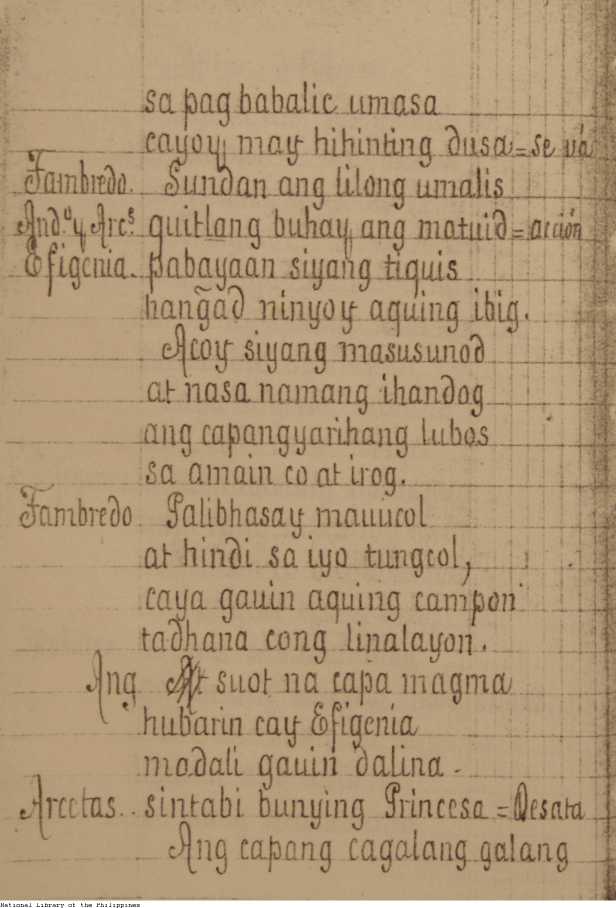 sa pag babalic umasa
cayoy may hihinting dusa = se vá
Fambredo. Sundan ang lilong umalis
And.º y Arc.s quitlang buhay ang matuid = acción
Efigenia. pabayaan siyang tiquis
hang̃ad ninyoy aquing ibig.
Acoy siyang masusunod
at nasa namang ihandog
ang capangyarihang lubos
sa amain co at irog.
Fambredo Palibhasay mauucol
at hindi sa iyo tungcol,
caya gauin aquing campon
tadhana cong linalayon.
Ang suot na capa magma
hubarin cay Efigenia
madali gauin dalina -
Arcetas.. sintabi bunying Princesa = Desata
Ang capang cagalang galang
National Library of the Philippines